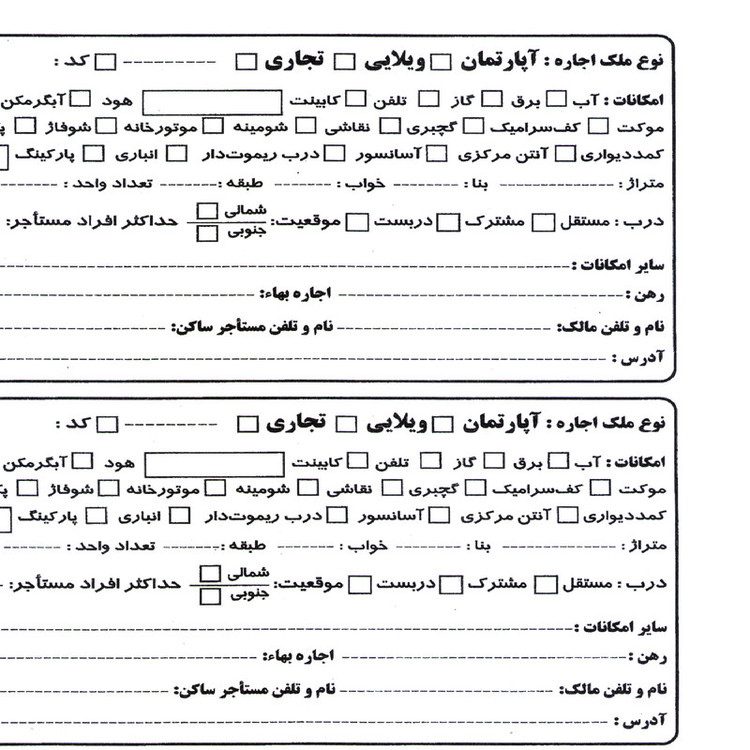 نوع ملک اجاره : آپارتمان □ ویلایی □ تجاری □ --------- □ کد :
امکانات : آب □ برق □ گاز □ تلفن □ کابینت □ هود □ آبگرمکن
موکت □ کف‌سرامیک □ گچبری □ نقاشی □ شومینه □ موتورخانه □ شوفاژ □
کمددیواری □ آنتن مرکزی □ آسانسور □ درب ریموت‌دار □ انباری □ پارکینگ □
متراژ : -------- بنا : -------- خواب : ------- طبقه : ------- تعداد واحد : -------
درب : مستقل □ مشترک □ دربست □ موقعیت: شمالی □ جنوبی □ حداکثر افراد مستأجر:
سایر امکانات : --------
رهن : -------- اجاره بهاء: --------
نام و تلفن مالک: -------- نام و تلفن مستأجر ساکن: --------
آدرس : --------
نوع ملک اجاره : آپارتمان □ ویلایی □ تجاری □ --------- □ کد :
امکانات : آب □ برق □ گاز □ تلفن □ کابینت □ هود □ آبگرمکن
موکت □ کف‌سرامیک □ گچبری □ نقاشی □ شومینه □ موتورخانه □ شوفاژ □
کمددیواری □ آنتن مرکزی □ آسانسور □ درب ریموت‌دار □ انباری □ پارکینگ □
متراژ : -------- بنا : -------- خواب : ------- طبقه : ------- تعداد واحد : -------
درب : مستقل □ مشترک □ دربست □ موقعیت: شمالی □ جنوبی □ حداکثر افراد مستأجر:
سایر امکانات : --------
رهن : -------- اجاره بهاء: --------
نام و تلفن مالک: -------- نام و تلفن مستأجر ساکن: --------
آدرس : --------